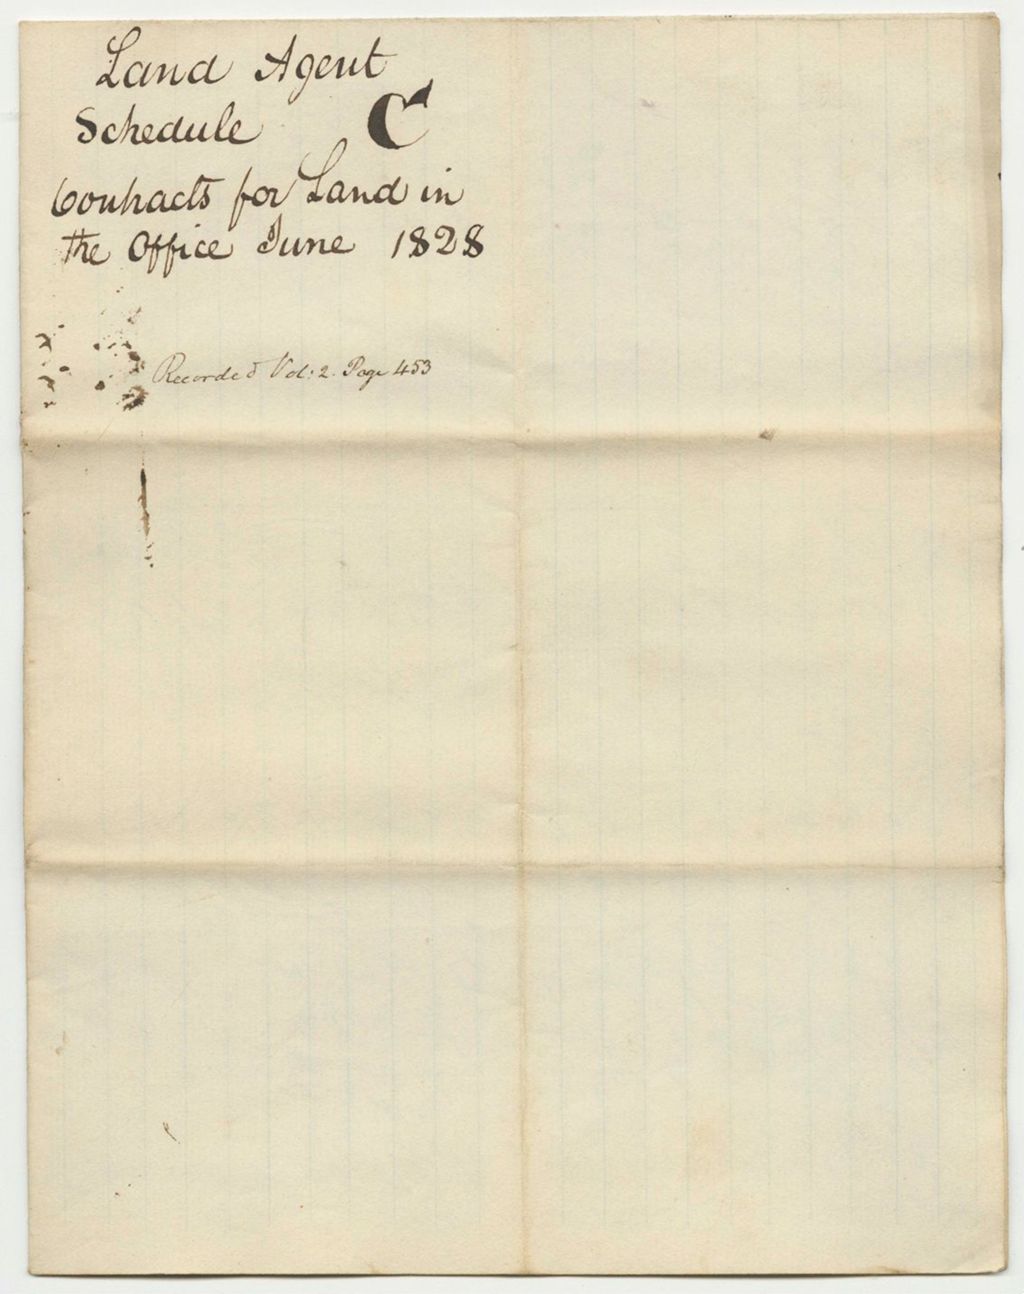 Land Agent
Schedule C
Contracts for Land in
the Office June 1828
Recorded Vol: 2. Page 453